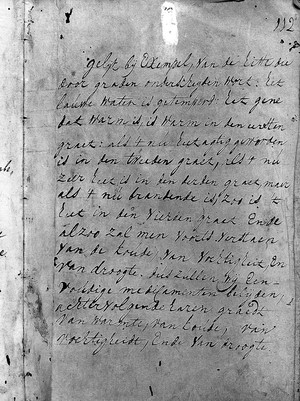 112
gelyk bij Exempel, van de hitte die
door graden onderscheyden wort: het
lauwe water is getempert: het gene
dat warm is, is warm in den eersten
graet: als t nu heet adig geworden
is in den tweeden graet, als t nu
zeer heet is in den derden graet, maar
als t nu brandende is, zoo is t
heet in den vierden graet Ende
alzoo zal men voorts verstaen
van de koude, van vochticheit, en
van droogte, dus zullen wij Een-
voudige medicamenten bringen,
achtervolgende haren graedt
van warmte, van koude, van
vochtigheidt, Ende van droogte